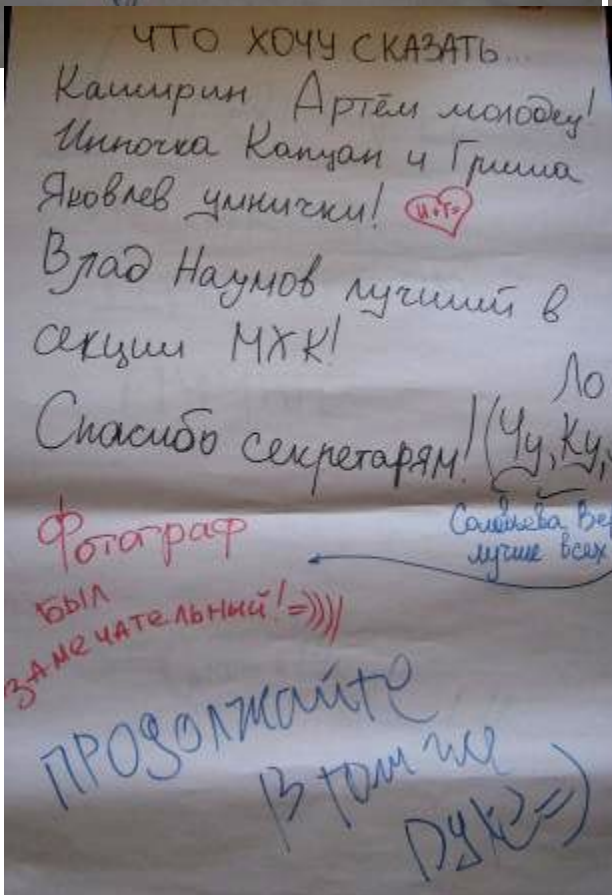 ЧТО ХОЧУ СКАЗАТЬ...
Каширин Артём молодец!
Инночка Капцан и Гриша
Яковлев умнички!
И+Г=
Влад Наумов лучший в
секции МХК!
Ло
Спасибо секретарям! (Чу, Ку,
Фотограф
Соловьева Ве
лучше всех
был
замечательный! =))))
ПРОДОЛЖАЙТЕ
в том же
духе =)